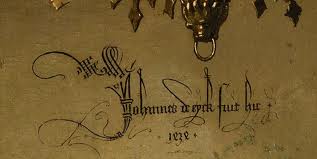 Johannes de eyck fuit hic
· 1434 ·